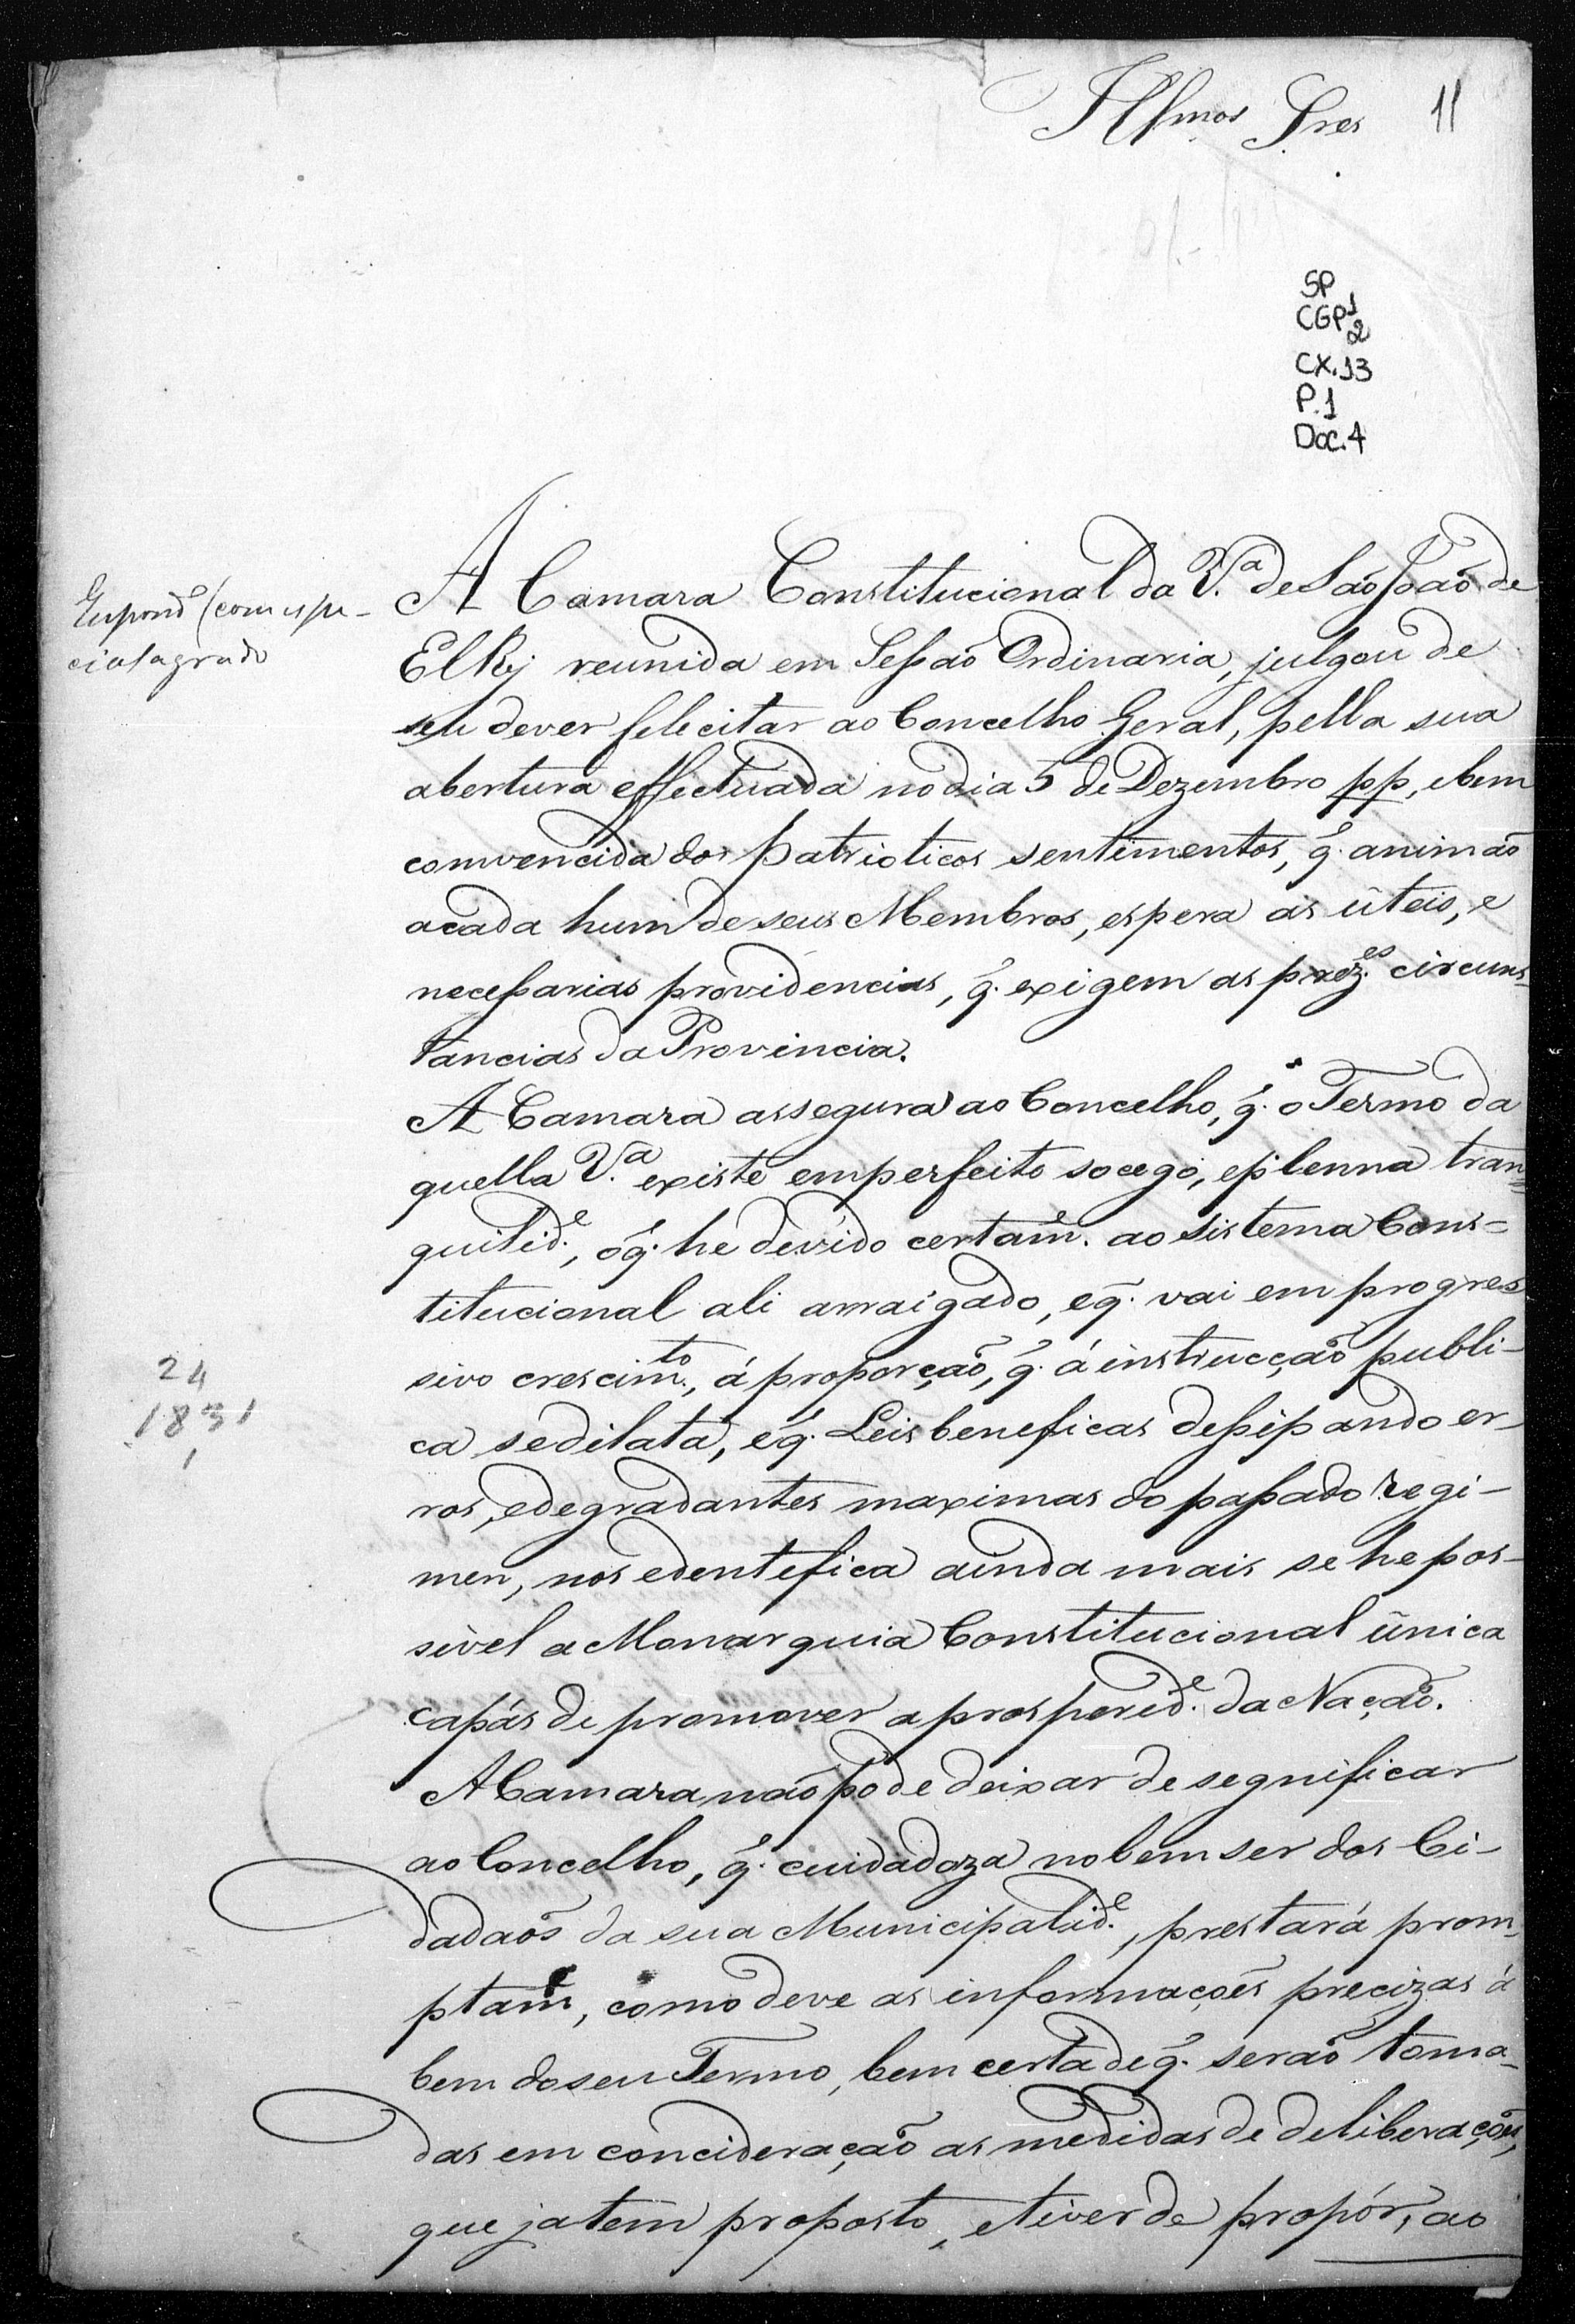 Illmos Sres 11
SP
CGP 1
2
CX.13
P.1
Doc.4
A Camara Constitucional da V.ª de São João de
ElRej reunida em Sessaõ Ordinaria, julgou de
seu dever felecitar ao Concelho Geral, pella sua
abertura effectuada no dia 5 de Dezembro pp, ebem
comvencida dos patrioticos sentimentos, q̃. animaõ
acada hum de seus Membros, espera as úteis, e
necessarias providencias, q̃. exigem as prez.es circuns-
tancias da Provincia.
A Camara assegura ao Concelho, q̃. o Termo da
quella V.ª existe emperfeito socego, eplenna tran=
quilid.e, oq̃. he devido certam.e ao sistema Cons=
titucional ali arraigado, eq̃. vai em progres
sivo crescim.to, á proporção, q̃. á instrucção publi-
ca sedilata, eq̃. Leis beneficas dessipando er-
ros, edegradantes maximas do passado regi-
men, nos edentefica ainda mais se he pos-
sivel a Monarquia Constitucional única
capás de promover a prospered.e da Nação.
A Camara não pode deixar de segnificar
ao Concelho, q̃. cuidadoza no bem ser dos Ci-
dadaõs da sua Municipalid.e, prestará prom-
ptam.e, como deve as informações precizas á
bem do seu Termo, bem certa de q̃. seraõ toma-
das em concideração as medidas de deliberações,
que ja tem proposto, etiver de propór, ao
Respond. (com espe-
cial agrado
24
1831
1